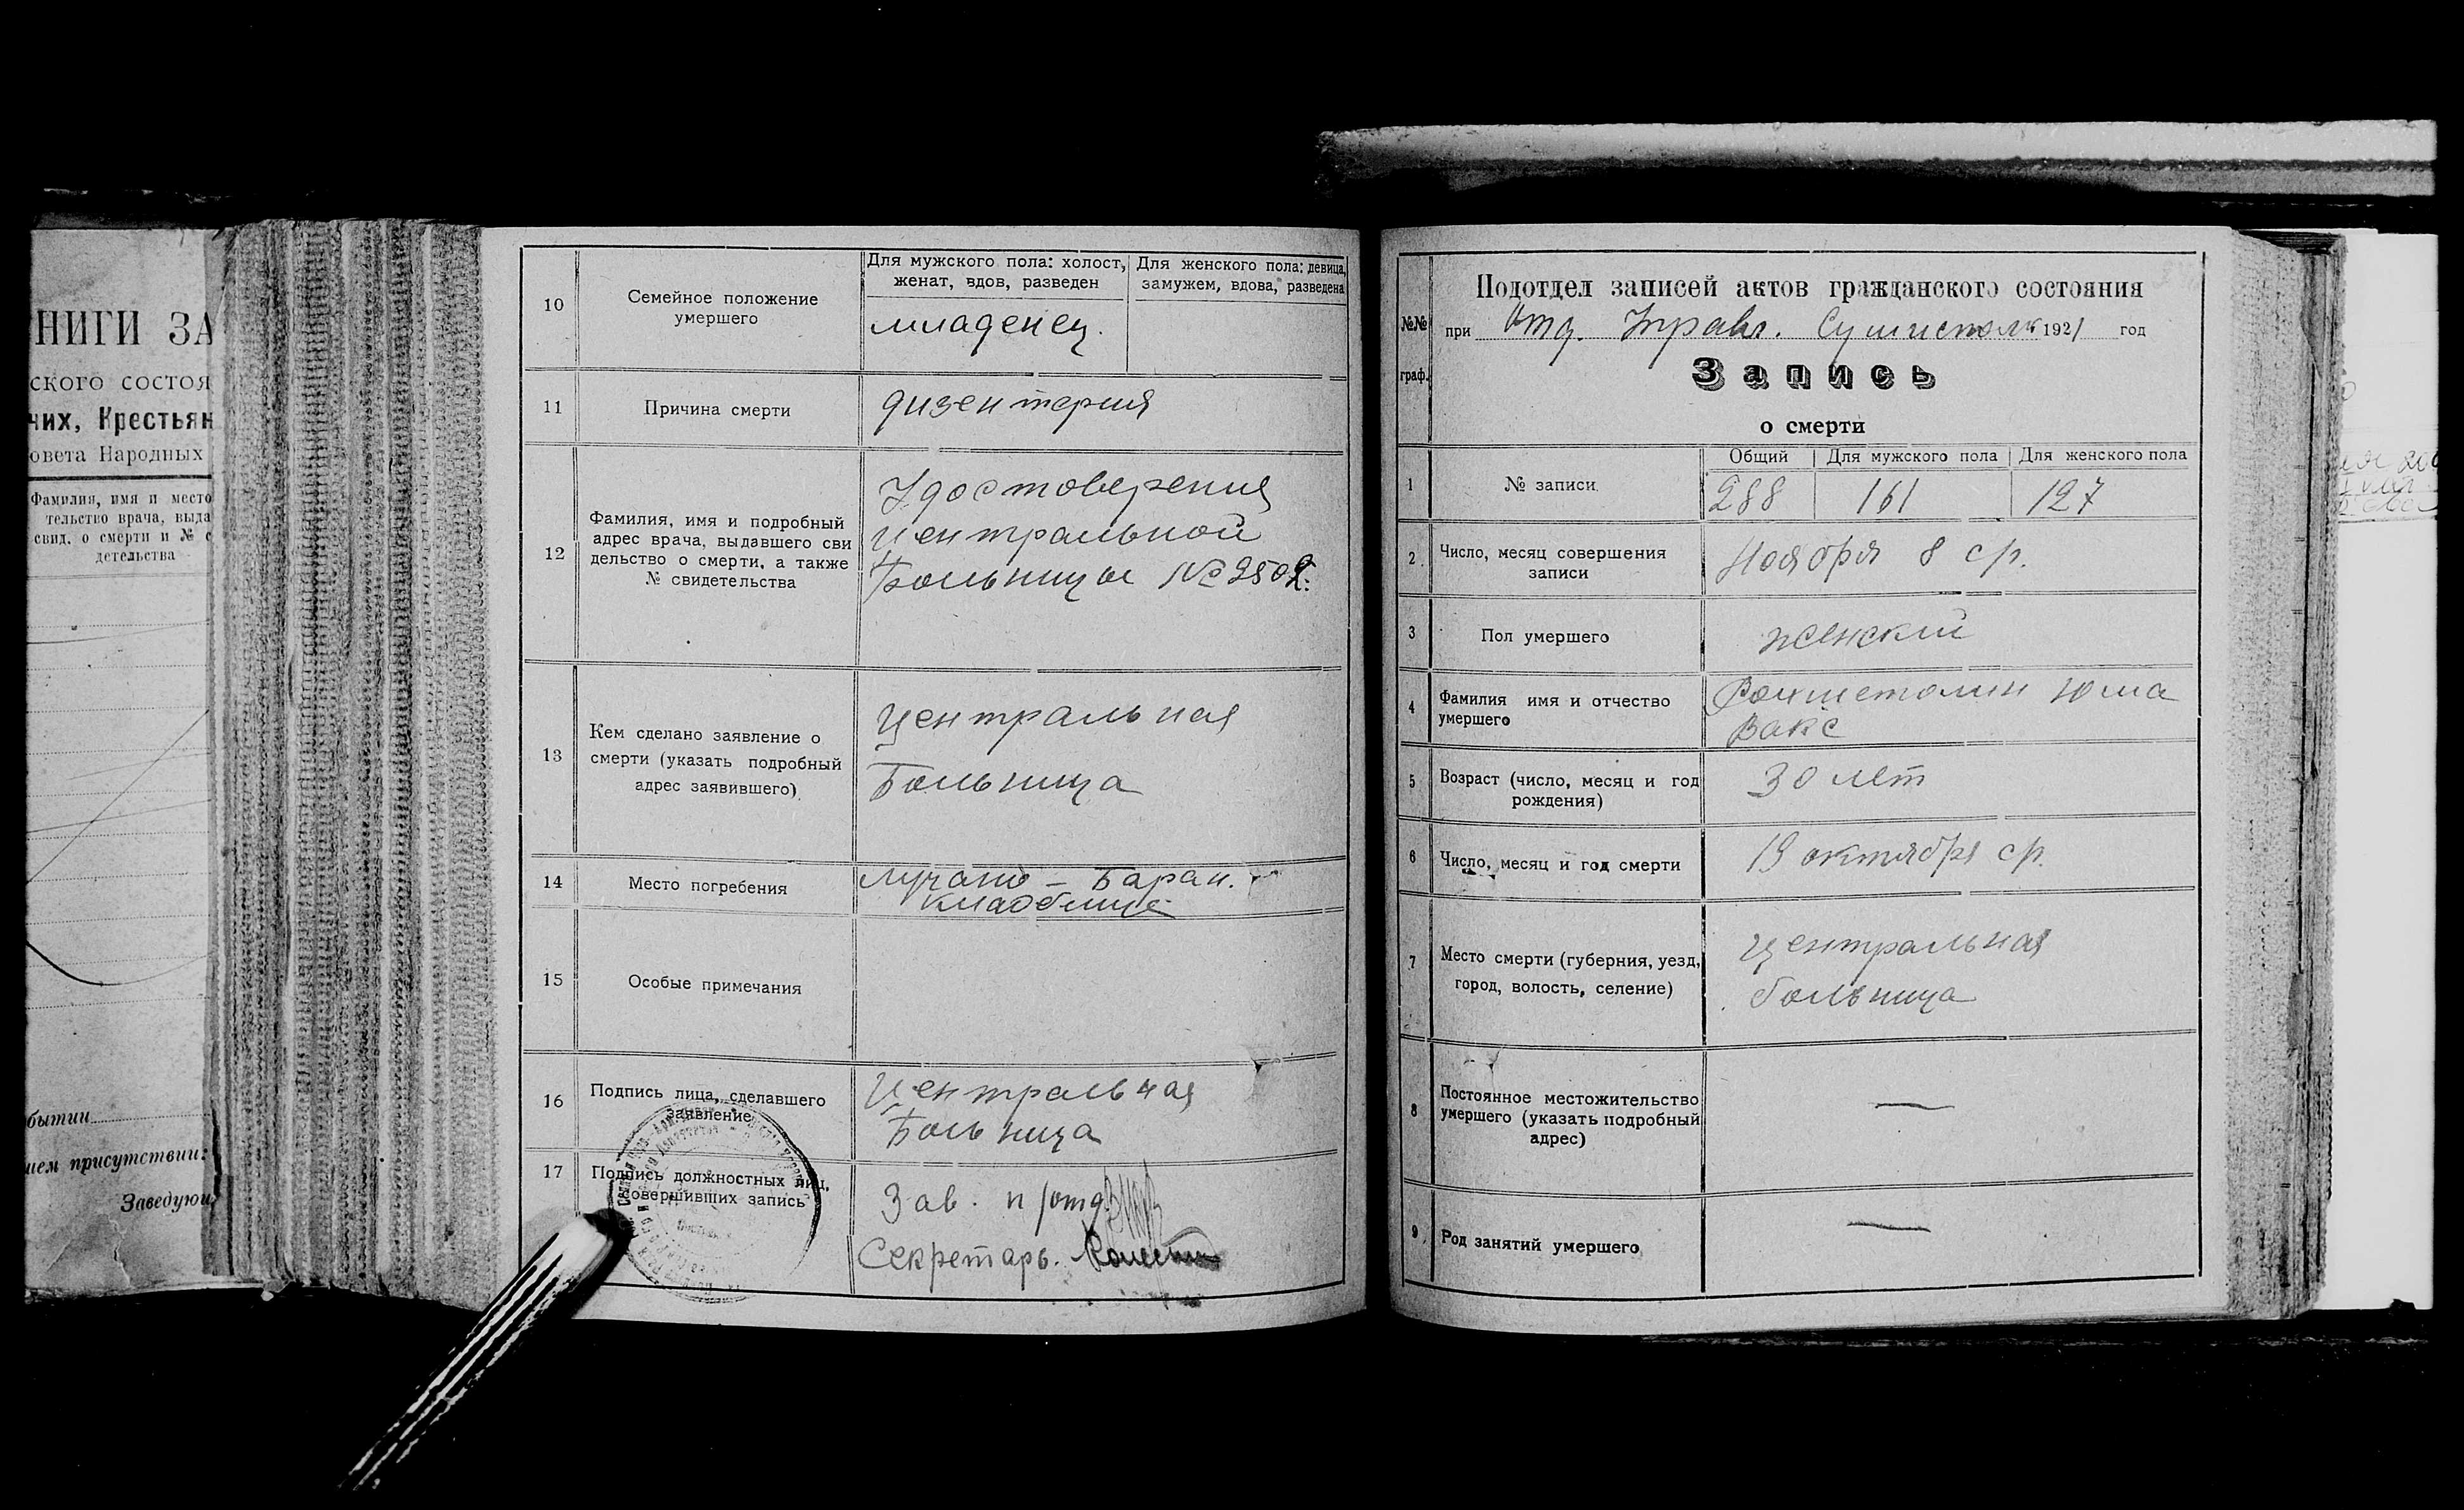 НИГИ ЗА
ского состоя
чих, Крестьян
овета Народных
Фамилия, имя и место
тельство врача, выда
свид. о смерти и № с
детельства
бытии
ием присутствии:
Заведую
10
Семейное положение
умершего
Для мужского пола: холост,
женат, вдов, разведен
Для женского пола: девица,
замужем, вдова, разведена
младенец.
11
Причина смерти
дизентерия
12
Фамилия, имя и подробный
адрес врача, выдавшего сви
дельство о смерти, а также
№ свидетельства
Удостоверения
центральной
Больницы № 2502.
13
Кем сделано заявление о
смерти (указать подробный
адрес заявившего)
Центральная
Больница
14
Место погребения
Лучано - Баран.
кладбище
15
Особые примечания
16
Подпись лица, сделавшего
заявление
Центральная
Больница
17
Подпись должностных лиц,
совершивших запись
Зав. п/отд.
Секретарь.
№№
граф.
Подотдел записей актов гражданского состояния
при Отд. Управл. 1921 год
Запись
о смерти
1
№ записи
Общий
Для мужского пола
Для женского пола
288
161
127
2
Число, месяц совершения
записи
Ноября 8 с/г.
3
Пол умершего
женский
4
Фамилия имя и отчество
умершего
Юла
Вакс
5
Возраст (число, месяц и год
рождения)
30 лет
6
Число, месяц и год смерти
19 октября с/г.
7
Место смерти (губерния, уезд,
город, волость, селение)
Центральная
больница
8
Постоянное местожительство
умершего (указать подробный
адрес)
—
9
Род занятий умершего
—